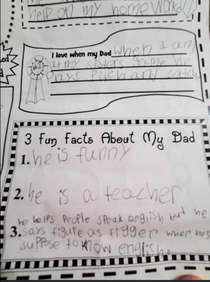 help on my homework!!
I love when my Dad when I am
at my sisters game he
says
3 Fun Facts About My Dad
1. he is funny
2. he is a teacher
he helps People speak english but he
3. says figure as figger when hes
suppose to know english